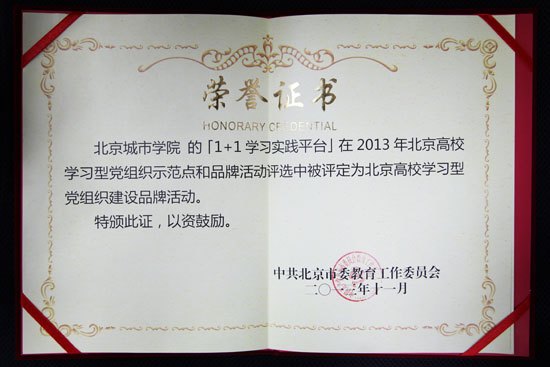 荣誉证书
HONORARY CREDENTIAL
北京城市学院 的「1+1学习实践平台」在2013年北京高校
学习型党组织示范点和品牌活动评选中被评定为北京高校学习型
党组织建设品牌活动。
特颁此证，以资鼓励。
中共北京市委教育工作委员会
二〇一三年十一月